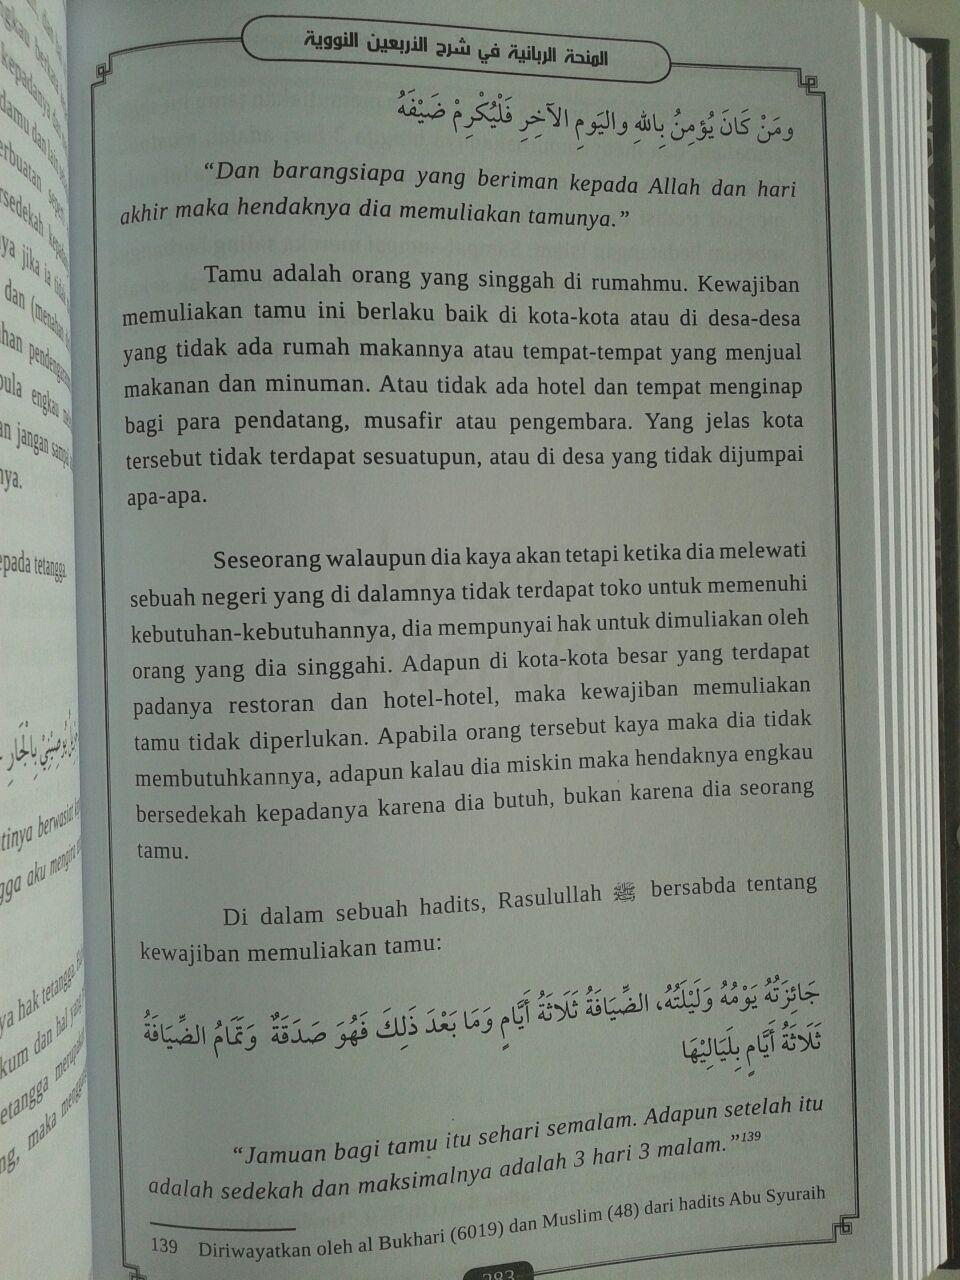 المنحة الربانية في شرح الأربعين النووية
ومَنْ كَانَ يُؤمِنُ بِاللهِ واليَومِ الآخِرِ فَلْيُكْرِمْ ضَيْفَهُ
“Dan barangsiapa yang beriman kepada Allah dan hari
akhir maka hendaknya dia memuliakan tamunya.”
Tamu adalah orang yang singgah di rumahmu. Kewajiban
memuliakan tamu ini berlaku baik di kota-kota atau di desa-desa
yang tidak ada rumah makannya atau tempat-tempat yang menjual
makanan dan minuman. Atau tidak ada hotel dan tempat menginap
bagi para pendatang, musafir atau pengembara. Yang jelas kota
tersebut tidak terdapat sesuatupun, atau di desa yang tidak dijumpai
apa-apa.
Seseorang walaupun dia kaya akan tetapi ketika dia melewati
sebuah negeri yang di dalamnya tidak terdapat toko untuk memenuhi
kebutuhan-kebutuhannya, dia mempunyai hak untuk dimuliakan oleh
orang yang dia singgahi. Adapun di kota-kota besar yang terdapat
padanya restoran dan hotel-hotel, maka kewajiban memuliakan
tamu tidak diperlukan. Apabila orang tersebut kaya maka dia tidak
membutuhkannya, adapun kalau dia miskin maka hendaknya engkau
bersedekah kepadanya karena dia butuh, bukan karena dia seorang
tamu.
Di dalam sebuah hadits, Rasulullah ﷺ bersabda tentang
kewajiban memuliakan tamu:
جَائِزَتُهُ يَوْمُهُ وَلَيْلَتُهُ، الضِّيَافَةُ ثَلَاثَةُ أَيَّامٍ وَمَا بَعْدَ ذَلِكَ فَهُوَ صَدَقَةٌ وَتَمَامُ الضِّيَافَةُ
ثَلَاثَةُ أَيَّامٍ بِلَيَالِيْهَا
“Jamuan bagi tamu itu sehari semalam. Adapun setelah itu
adalah sedekah dan maksimalnya adalah 3 hari 3 malam.”139
139 Diriwayatkan oleh al Bukhari (6019) dan Muslim (48) dari hadits Abu Syuraih